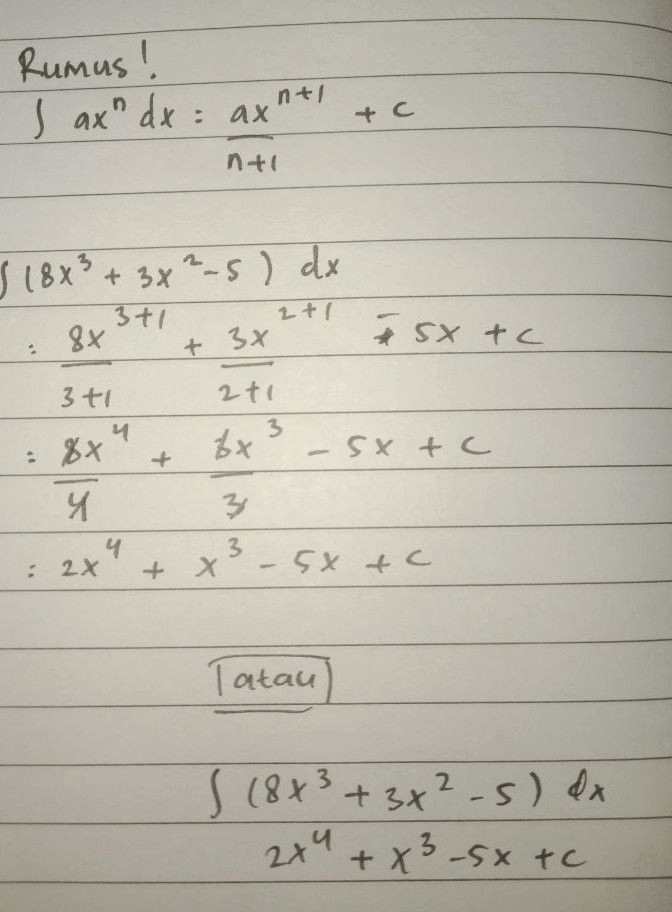 Rumus!
∫ axⁿ dx = axⁿ⁺¹/n+1 + c
∫(8x³ + 3x² - 5) dx
= 8x³⁺¹/3+1 + 3x²⁺¹/2+1 - 5x + c
= 8x⁴/4 + 3x³/3 - 5x + c
= 2x⁴ + x³ - 5x + c
atau
∫ (8x³ + 3x² - 5) dx
2x⁴ + x³ - 5x + c